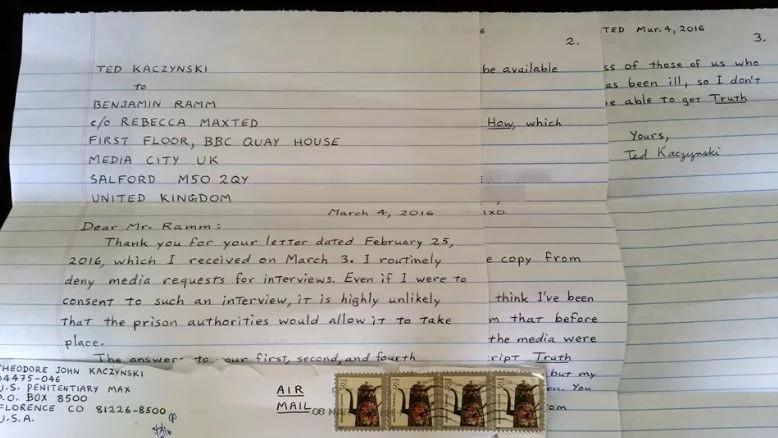 TED KACZYNSKI
to
BENJAMIN RAMM
c/o REBECCA MAXTED
FIRST FLOOR, BBC QUAY HOUSE
MEDIA CITY UK
SALFORD M50 2QY
UNITED KINGDOM
March 4, 2016
Dear Mr. Ramm:
Thank you for your letter dated February 25,
2016, which I received on March 3. I routinely
deny media requests for interviews. Even if I were to
consent to such an interview, it is highly unlikely
that the prison authorities would allow it to take
place.
The answers to our first, second, and fourth
2.
be available
How, which
e copy from
think I've been
m that before
the media were
ript Truth
but my
en. You
om
TED Mar. 4, 2016
3.
ss of those of us who
as been ill, so I don't
e able to get Truth
Yours,
Ted Kaczynski
THEODORE JOHN KACZYNSKI
04475-046
U.S. PENITENTIARY MAX
P.O. BOX 8500
FLORENCE CO 81226-8500
U.S.A.
AIR
MAIL